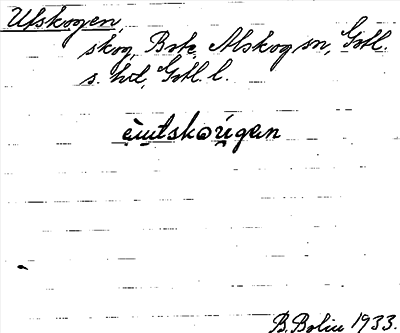 Utskogen,
skog, Bote, Alskog sn, Gotl.
s. hd, Gotl. l.
èu̯tskoúgen
B. Bolin 1933.